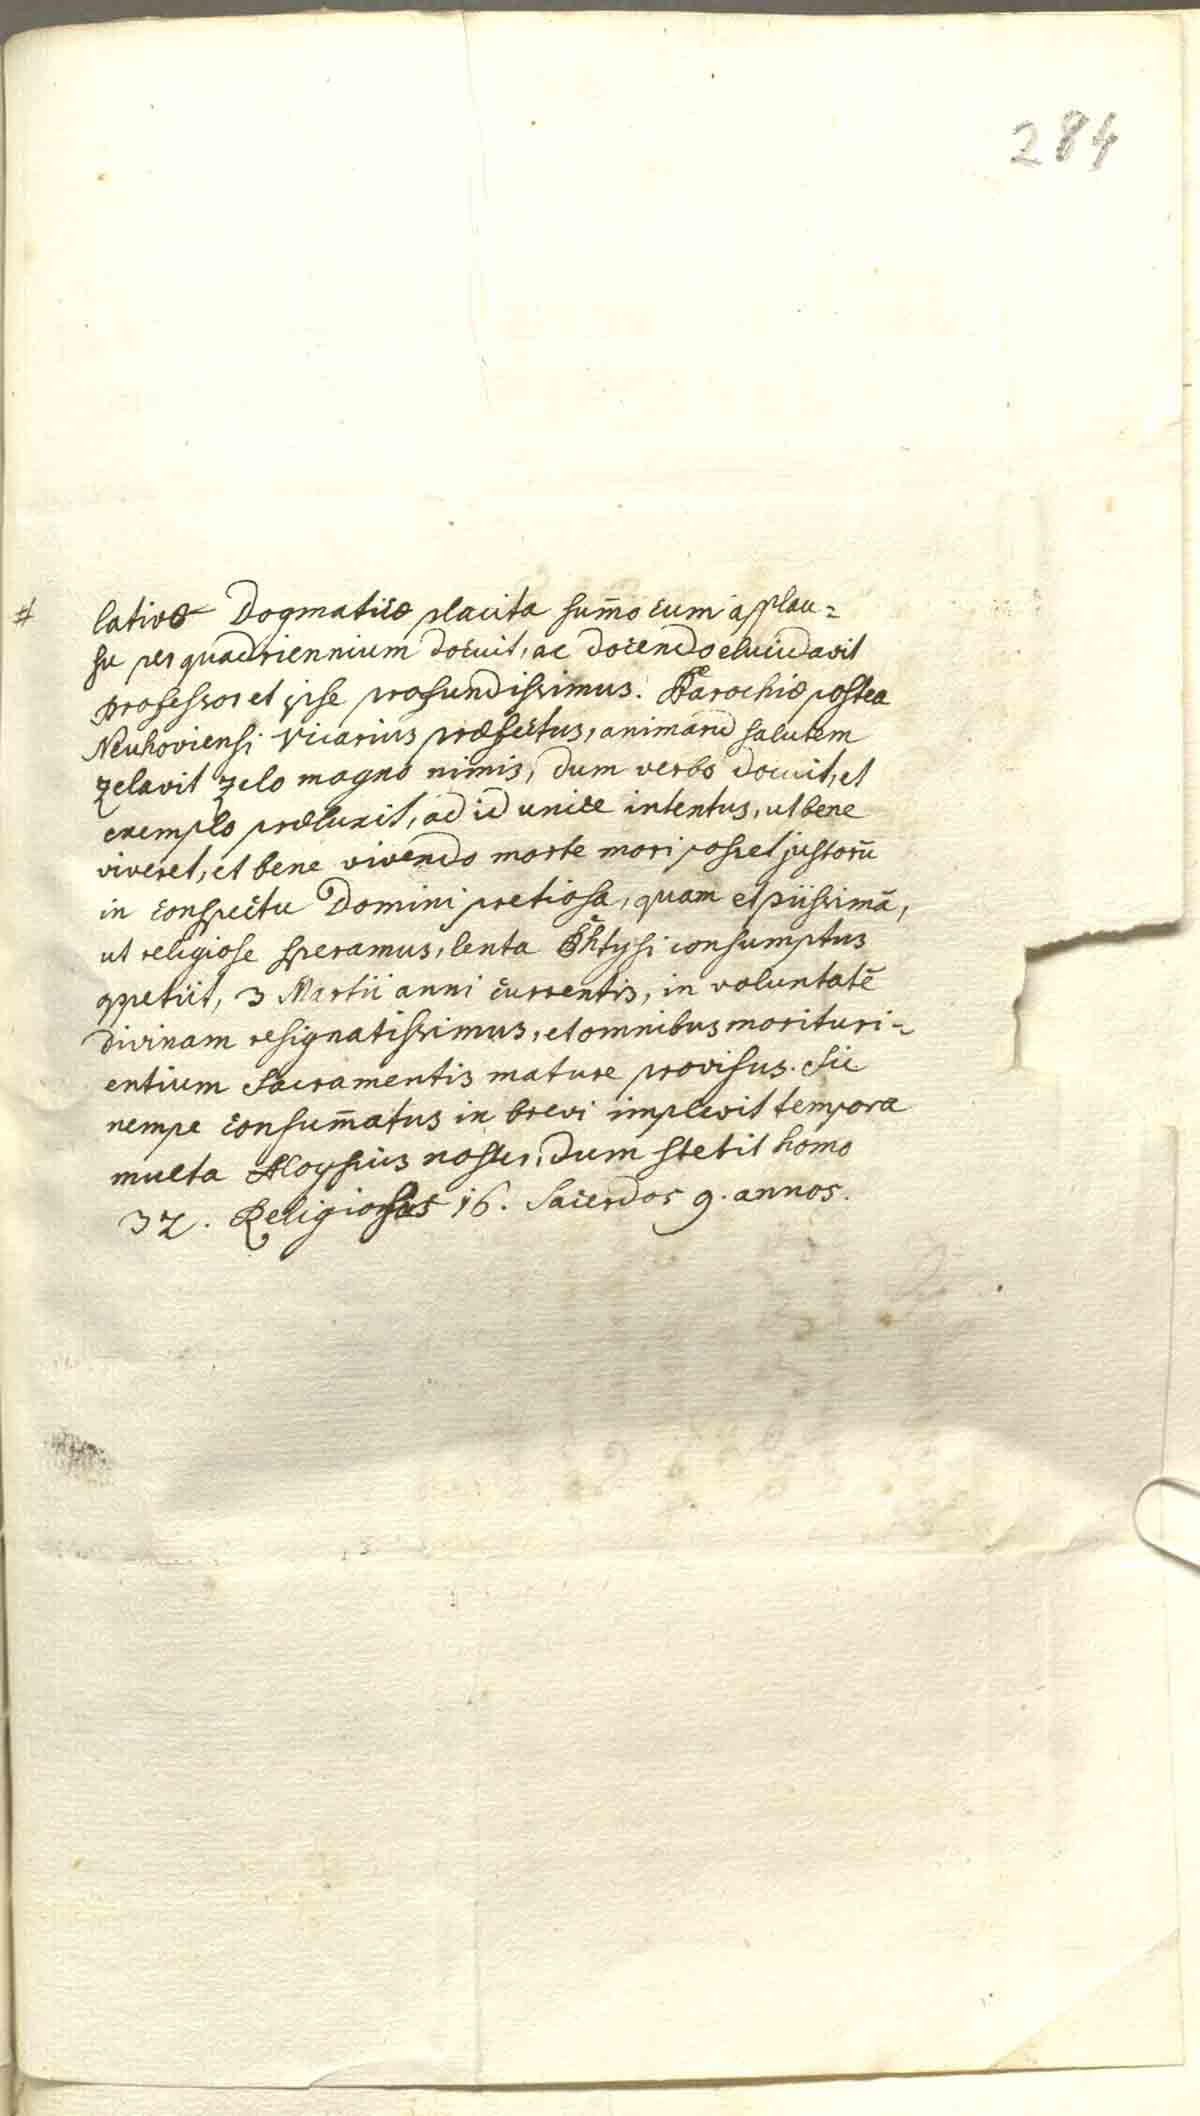 284
# lativæ Dogmaticæ placita sum̄o cum applau=
su per quadriennium docuit, ac docendo elucidavit
professor et ipse profundissimus. Parochiæ postea
Neuhoviensi Vicarius præfectus, animarū salutem
zelavit zelo magno nimis, dum verbo docuit, et
exemplo præluxit, ad id unice intentus, ut bene
viveret, et bene vivendo morte mori posset justorū
in conspectu Domini pretiosa, quam et piissimā,
ut religiose speramus, lenta Phtysi consumptus
oppetiit, 3 Martii anni currentis, in voluntatē
divinam resignatissimus, et omnibus morituri-
entium Sacramentis mature provisus. Sic
nempe consum̄atus in brevi implevit tempora
multa Aloysius noster, dum stetit homo
32. Religiosus 16. Sacerdos 9. annos.